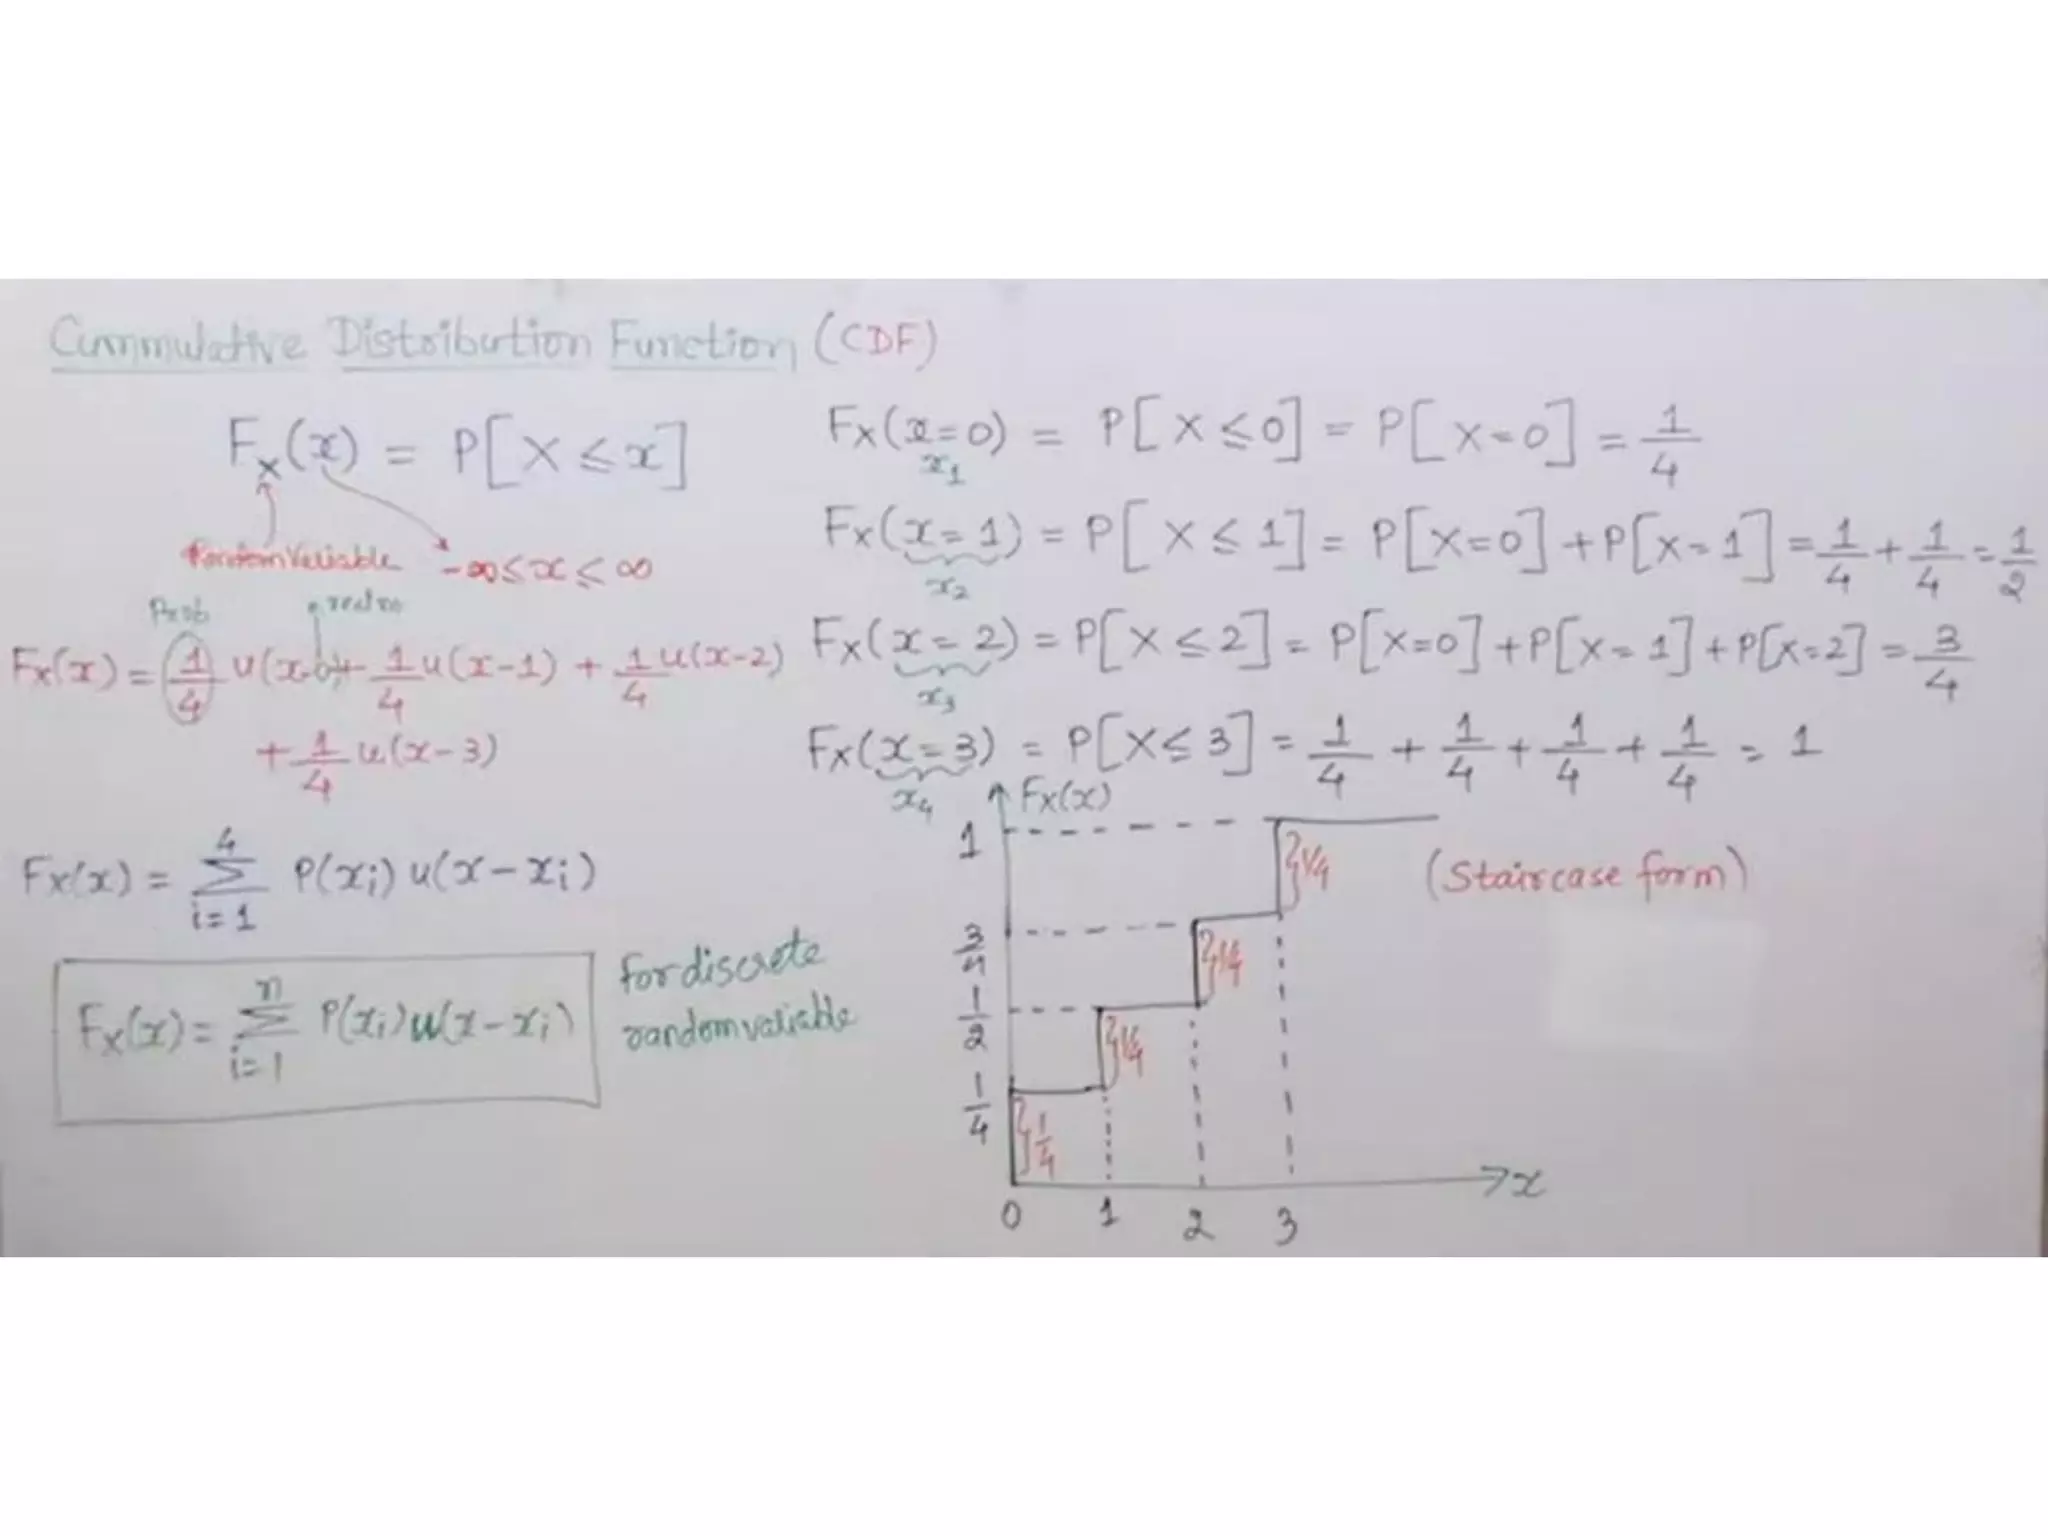 Cummulative Distribution Function (CDF)
Fx(x) = P[X ≤ x]
Random Variable
-∞ ≤ x ≤ ∞
Prob
real no
Fx(x) = 1/4 u(x-0) + 1/4 u(x-1) + 1/4 u(x-2)
+ 1/4 u(x-3)
Fx(x) = 4 Σ i=1 P(xi) u(x-xi)
Fx(x) = n Σ i=1 P(xi) u(x-xi)
for discrete
random variable
Fx(x=0) = P[X ≤ 0] = P[X=0] = 1/4
x1
Fx(x=1) = P[X ≤ 1] = P[X=0] + P[X=1] = 1/4 + 1/4 = 1/2
x2
Fx(x=2) = P[X ≤ 2] = P[X=0] + P[X=1] + P[X=2] = 3/4
x3
Fx(x=3) = P[X ≤ 3] = 1/4 + 1/4 + 1/4 + 1/4 = 1
x4
Fx(x)
1
1/4
(Staircase form)
3/4
1/4
1/2
1/4
1/4
1/4
x
0 1 2 3